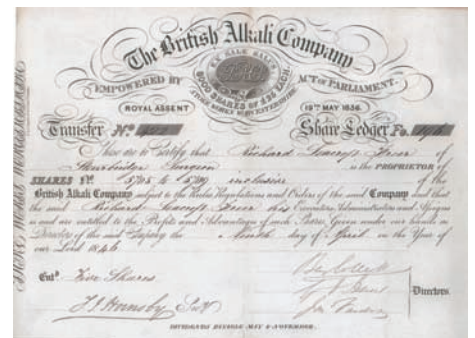 The British Alkali Company
EMPOWERED BY ACT OF PARLIAMENT.
5000 SHARES OF £35 EACH.
STOKE WORKS WORCESTERSHIRE
ROYAL ASSENT 19TH MAY 1836.
Transfer No. Share Ledger Fo. 196
These are to Certify that Richard Freer of
Stourbridge Surgeon is the PROPRIETOR of
SHARES No. 5705 to 5709 inclusive of the
British Alkali Company subject to the Rules Regulations and Orders of the said Company and that
the said Richard Freer his Executors Administrators and Assigns
is and are entitled to the Profits and Advantages of such Shares Given under our hands as
Directors of the said Company the Ninth day of April in the Year of
our Lord 1846
Entd. Five Shares
Directors.
F. J. Hornsby Secy
DIVIDENDS PAYABLE MAY & NOVEMBER.